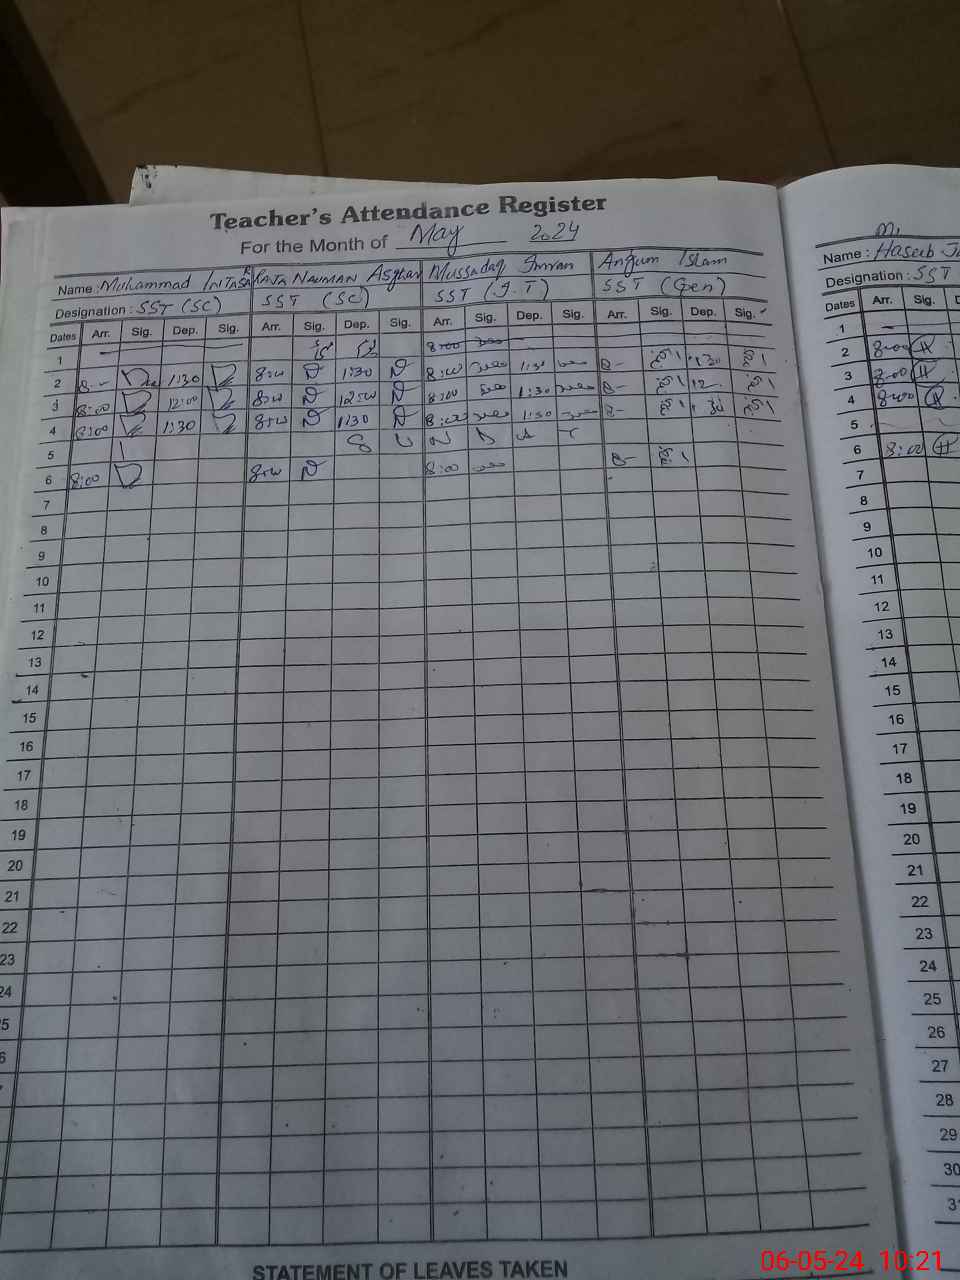 Teacher's Attendance Register
For the Month of May 2024
Name : Muhammad RAJA NAUMAN Asghar Mussadaq Imran Anjum Islam
Designation : SST (SC) SST (SC) SST (I.T) SST (Gen)
Dates Arr. Sig. Dep. Sig. Arr. Sig. Dep. Sig. Arr. Sig. Dep. Sig. Arr. Sig. Dep. Sig.
1 8:00
2 8- 1:30 8:00 1:30 8:00 1:30 8- 1:30
3 8:00 12:00 8:00 12:00 8:00 1:30 8- 12
4 8:00 1:30 8:00 1:30 8:00 1:30 8- 1:30
5 S U N D A Y
6 8:00 8:00 8:00 8-
7
8
9
10
11
12
13
14
15
16
17
18
19
20
21
22
23
24
5
6
STATEMENT OF LEAVES TAKEN
Name : Haseeb
Designation : SST
Dates Arr. Sig.
1
2 8:00
3 8:00
4 8:00
5
6 8:00
7
8
9
10
11
12
13
14
15
16
17
18
19
20
21
22
23
24
25
26
27
28
29
30
06-05-24 10:21